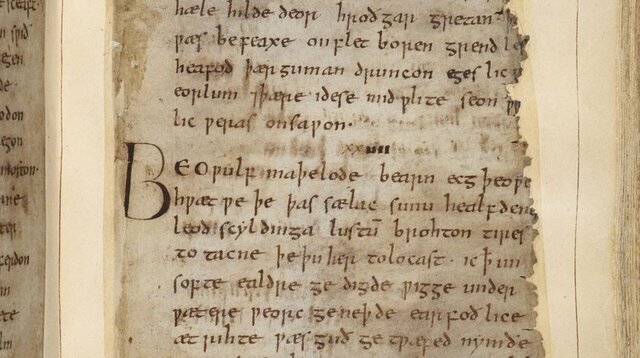 hæle hilde deor hroðgar gretan·
ƿæs be feaxe on flet boren grendle
heafod þær guman druncon egeslic
eorlum ⁊ þære idese mid ƿlite seon
lic ƿeras onsaƿon·
xxiiii
BEOǷULF maþelode bearn ecgþeoƿe
hƿæt ƿe þe þas sælac sunu healfdene
leod scyldinga lustū brohton tires
to tacne þe þu her to locast· ic þ un
softe ealdre ge digde ƿigge under
ƿætere ƿeorc ge neþde earfoð lice
æt rihte ƿæs guð ge tƿæfed nymðe